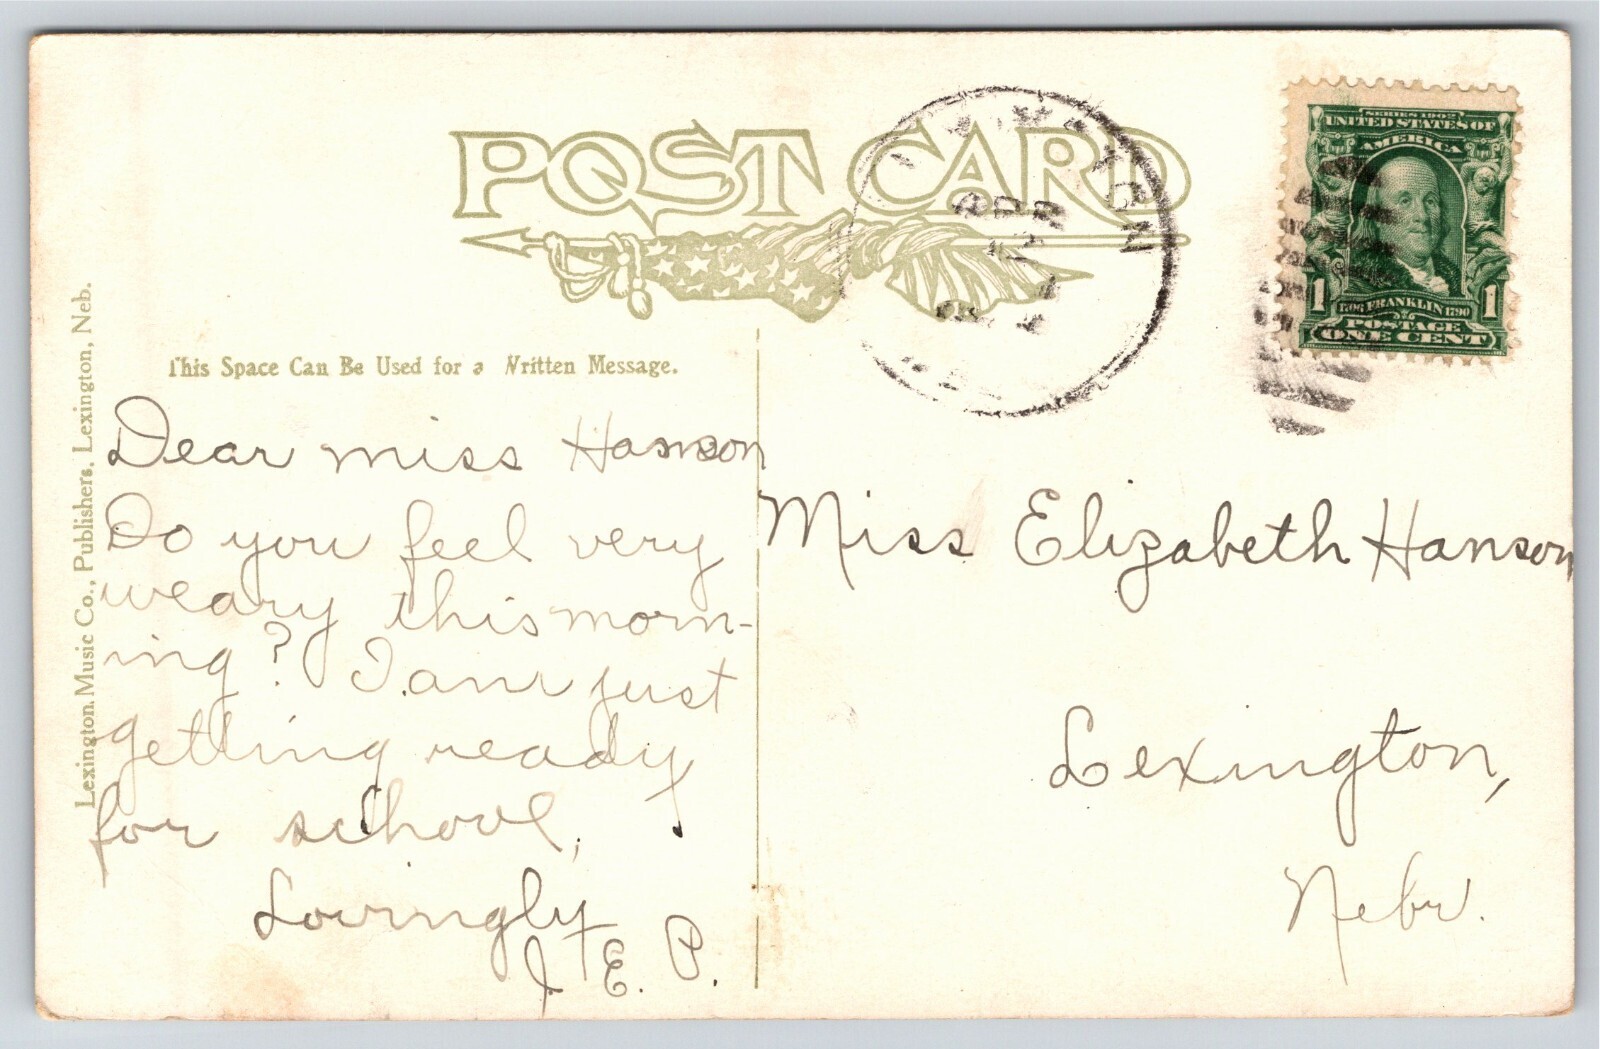 POST CARD
APR
SERIES 1902
UNITED STATES OF
AMERICA
1 1706 FRANKLIN 1790 1
POSTAGE
ONE CENT
This Space Can Be Used for a Written Message.
Lexington Music Co., Publishers, Lexington, Neb.
Dear miss Hanson
Do you feel very
weary this morn-
ing? I am just
getting ready
for school,
Lovingly
J. E. P.
Miss Elizabeth Hanson
Lexington,
Nebr.